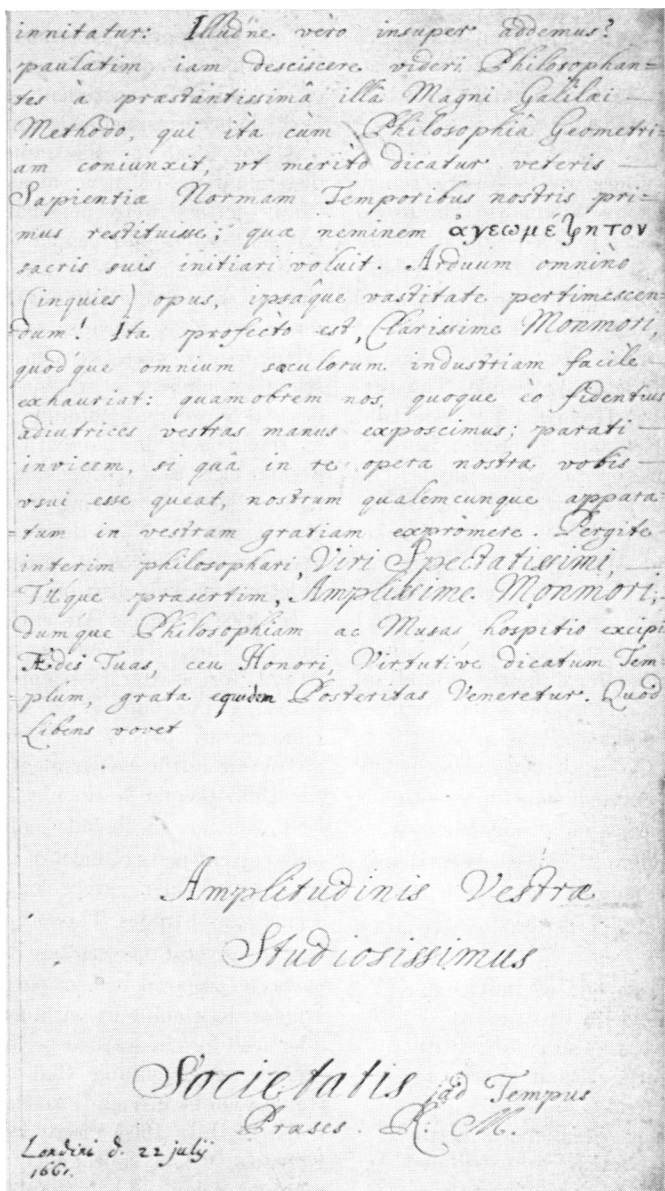 innitatur: Illud'ne vèro insuper addemus?
paulatim iam desciscere videri Philosophan=
tes à præstantissimâ illâ Magni Galilæi —
Methodo, qui ita cùm Philosophiâ Geometri
am coniunxit, vt meritò dicatur veteris —
Sapientiæ Normam Temporibus nostris pri=
mus restituisse; quæ neminem ἀγεωμέτρητον
sacris suis initiari voluit. Arduum omninò
(inquies) opus, ipsâque vastitate pertimescen
=dum! Ita profectò est, Clarissime Monmori,
quod'que omnium sæculorum industriam facile
exhauriat: quamobrem nos, quoque eò fidentius
adiutrices vestras manus exposcimus; parati —
invicem, si quâ in re opera nostra vobis —
vsui esse queat, nostrum qualemcunque appara
=tum in vestram gratiam expromere. Pergite
interim philosophari, Viri Spectatissimi, —
Túque præsertim, Amplissime Monmori;
dumque Philosophiam ac Musas hospitio excipi
Ædes Tuas, ceu Honori, Virtutive dicatum Tem
=plum, grata equidem Posteritas Veneretur. Quod
Libens vovet
Amplitudinis Vestræ
Studiosissimus
Societatis ad Tempus
Præses. R. M.
Londini d. 22 julij
1661.